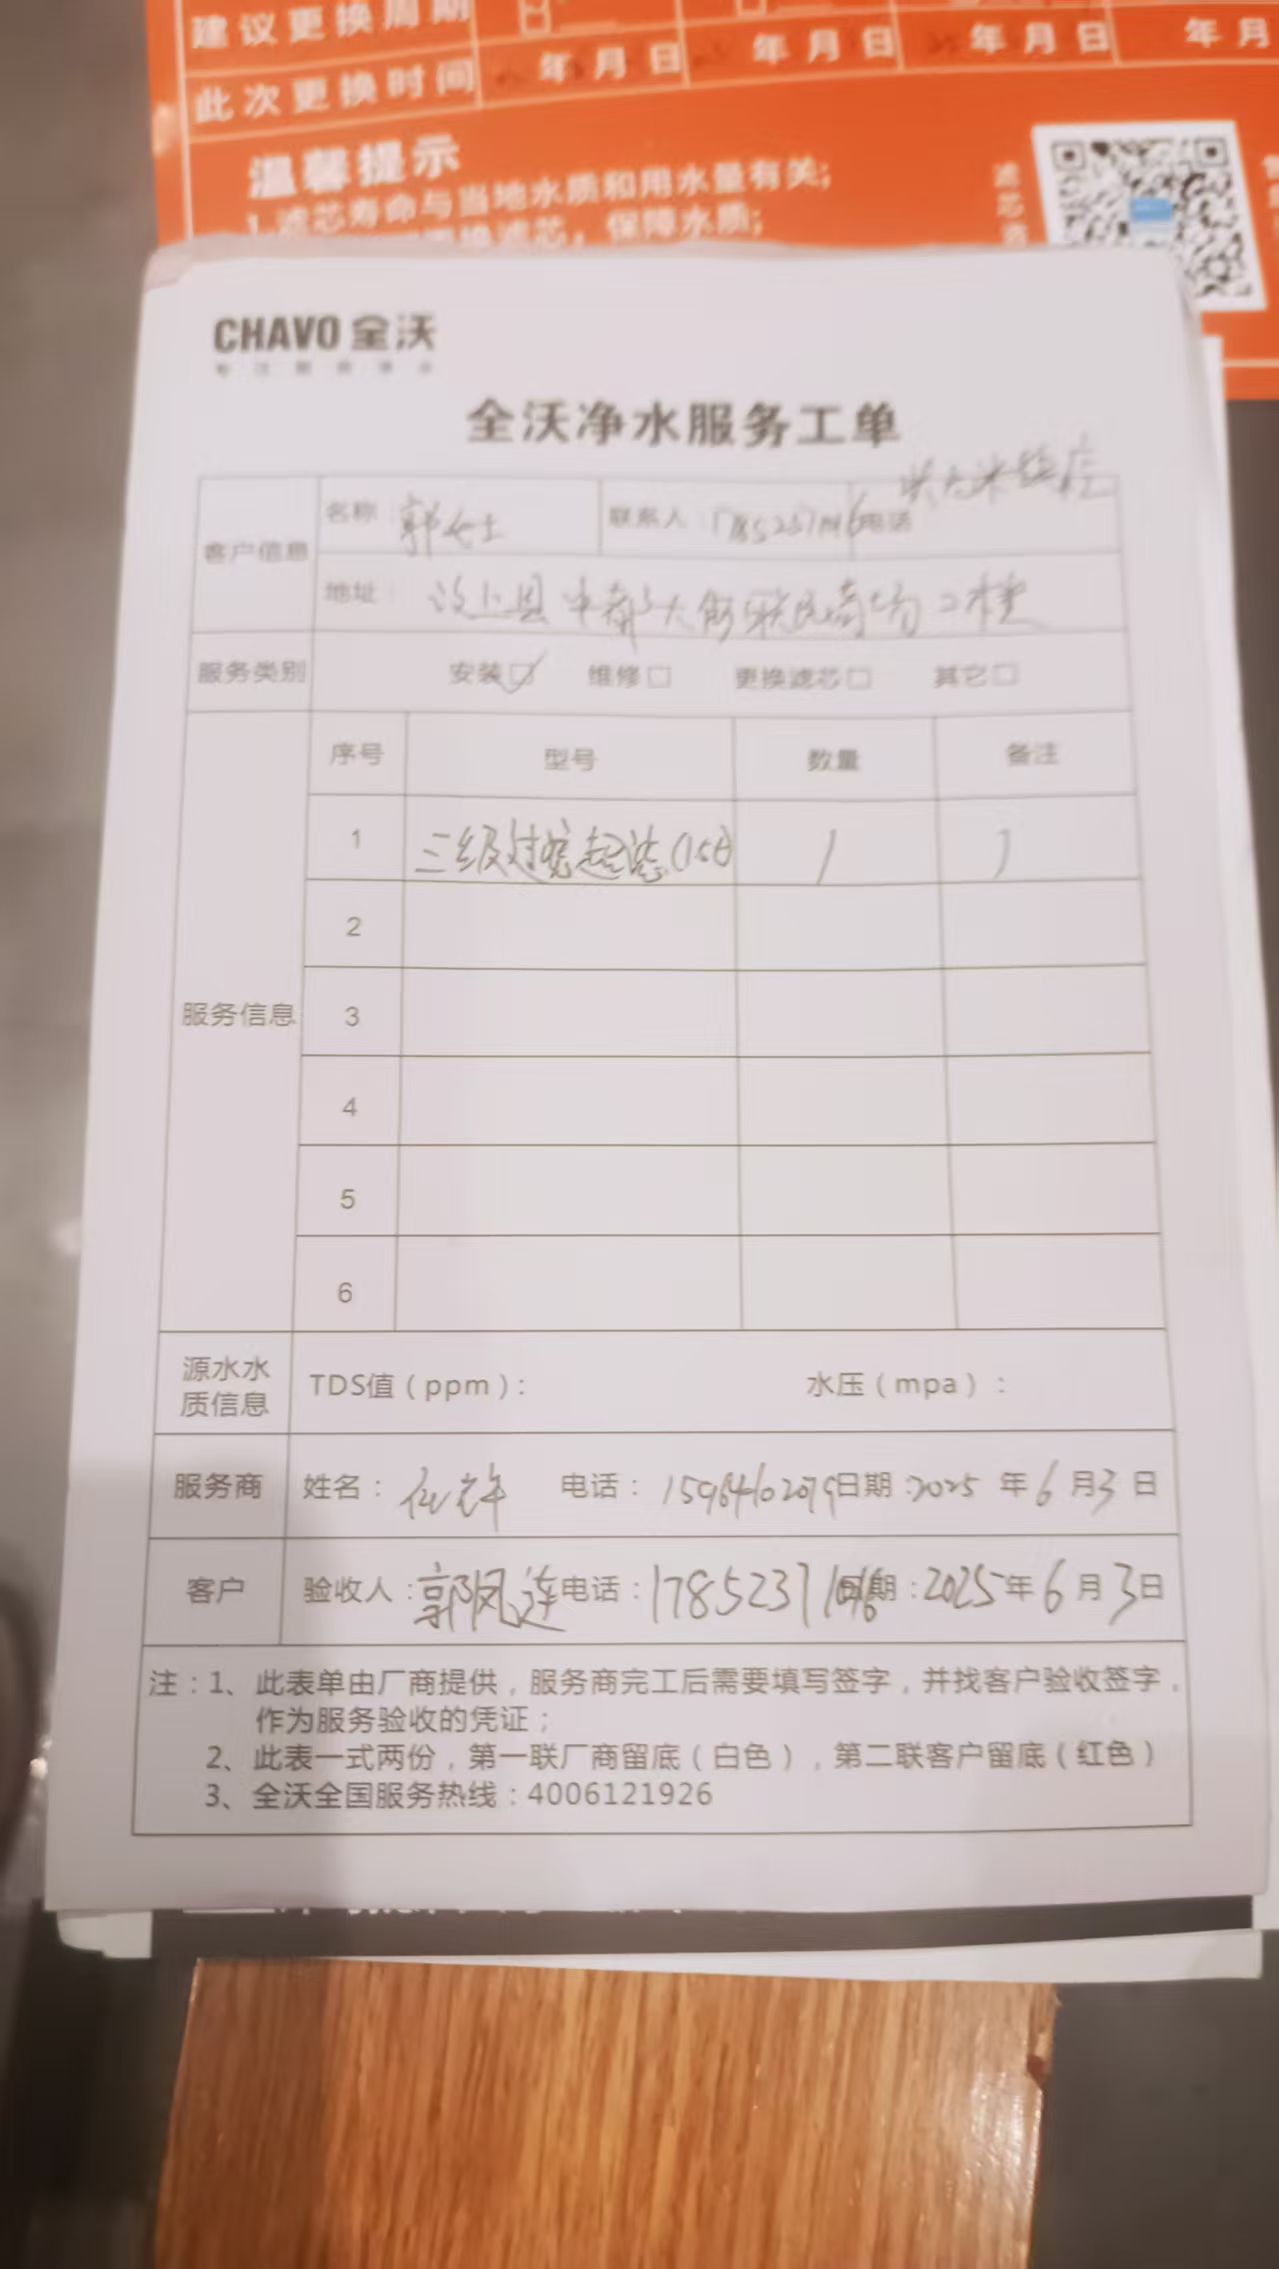 建议更换周期
日
日
此次更换时间 年 月 日 年 月 日 年 月 日 年 月
温馨提示
1.滤芯寿命与当地水质和用水量有关;
更换滤芯，保障水质;
滤芯
CHAVO 全沃
全沃净水服务工单
客户信息 名称： 郭女士 联系人： 电话
地址： 汶上县中都大街联民商场二楼
服务类别 安装☑ 维修□ 更换滤芯□ 其它□
服务信息 序号 型号 数量 备注
1 三级过滤超滤 1
2
3
4
5
6
源水水质信息 TDS值（ppm）： 水压（mpa）：
服务商 姓名： 电话： 日期：2025 年 6 月 3 日
客户 验收人：郭凤连 电话：1785237 日期：2025 年 6 月 3 日
注：1、此表单由厂商提供，服务商完工后需要填写签字，并找客户验收签字，
作为服务验收的凭证；
2、此表一式两份，第一联厂商留底（白色），第二联客户留底（红色）
3、全沃全国服务热线：4006121926